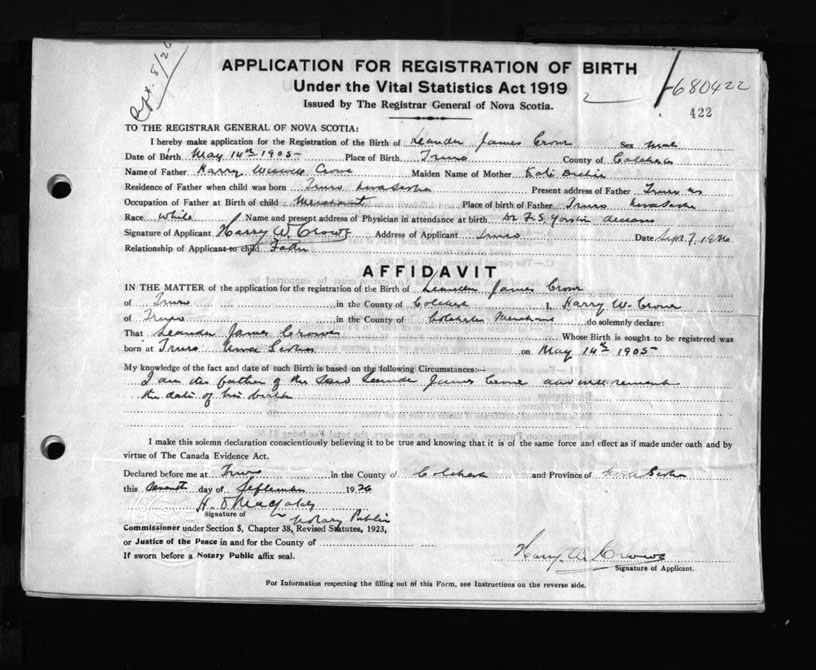 Rgt. 8/26
APPLICATION FOR REGISTRATION OF BIRTH
Under the Vital Statistics Act 1919
2
680422
Issued by The Registrar General of Nova Scotia.
422
TO THE REGISTRAR GENERAL OF NOVA SCOTIA:
I hereby make application for the Registration of the Birth of Leander James Crowe Sex Male
Date of Birth May 14th 1905 Place of Birth Truro County of Colchester
Name of Father Harry Crowe Maiden Name of Mother
Residence of Father when child was born Truro Nova Scotia Present address of Father Truro NS
Occupation of Father at Birth of child Merchant Place of birth of Father Truro Nova Scotia
Race White Name and present address of Physician in attendance at birth Dr F.S. Yorston deceased
Signature of Applicant Harry W. Crowe Address of Applicant Truro Date Sept 7, 1926
Relationship of Applicant to child Father
AFFIDAVIT
IN THE MATTER of the application for the registration of the Birth of Leander James Crowe
of Truro in the County of Colchester I, Harry W. Crowe
of Truro in the County of Colchester Merchant do solemnly declare:
That Leander James Crowe Whose Birth is sought to be registered was
born at Truro Nova Scotia on May 14th 1905
My knowledge of the fact and date of such Birth is based on the following Circumstances:—
I am the father of the said Leander James Crowe and well remember
the date of his birth
I make this solemn declaration conscientiously believing it to be true and knowing that it is of the same force and effect as if made under oath and by
virtue of The Canada Evidence Act.
Declared before me at Truro in the County of Colchester and Province of Nova Scotia
this Seventh day of September 1926
Signature of
Notary Public
Commissioner under Section 5, Chapter 38, Revised Statutes, 1923,
or Justice of the Peace in and for the County of
If sworn before a Notary Public affix seal.
Harry W. Crowe
Signature of Applicant.
For Information respecting the filling out of this Form, see Instructions on the reverse side.